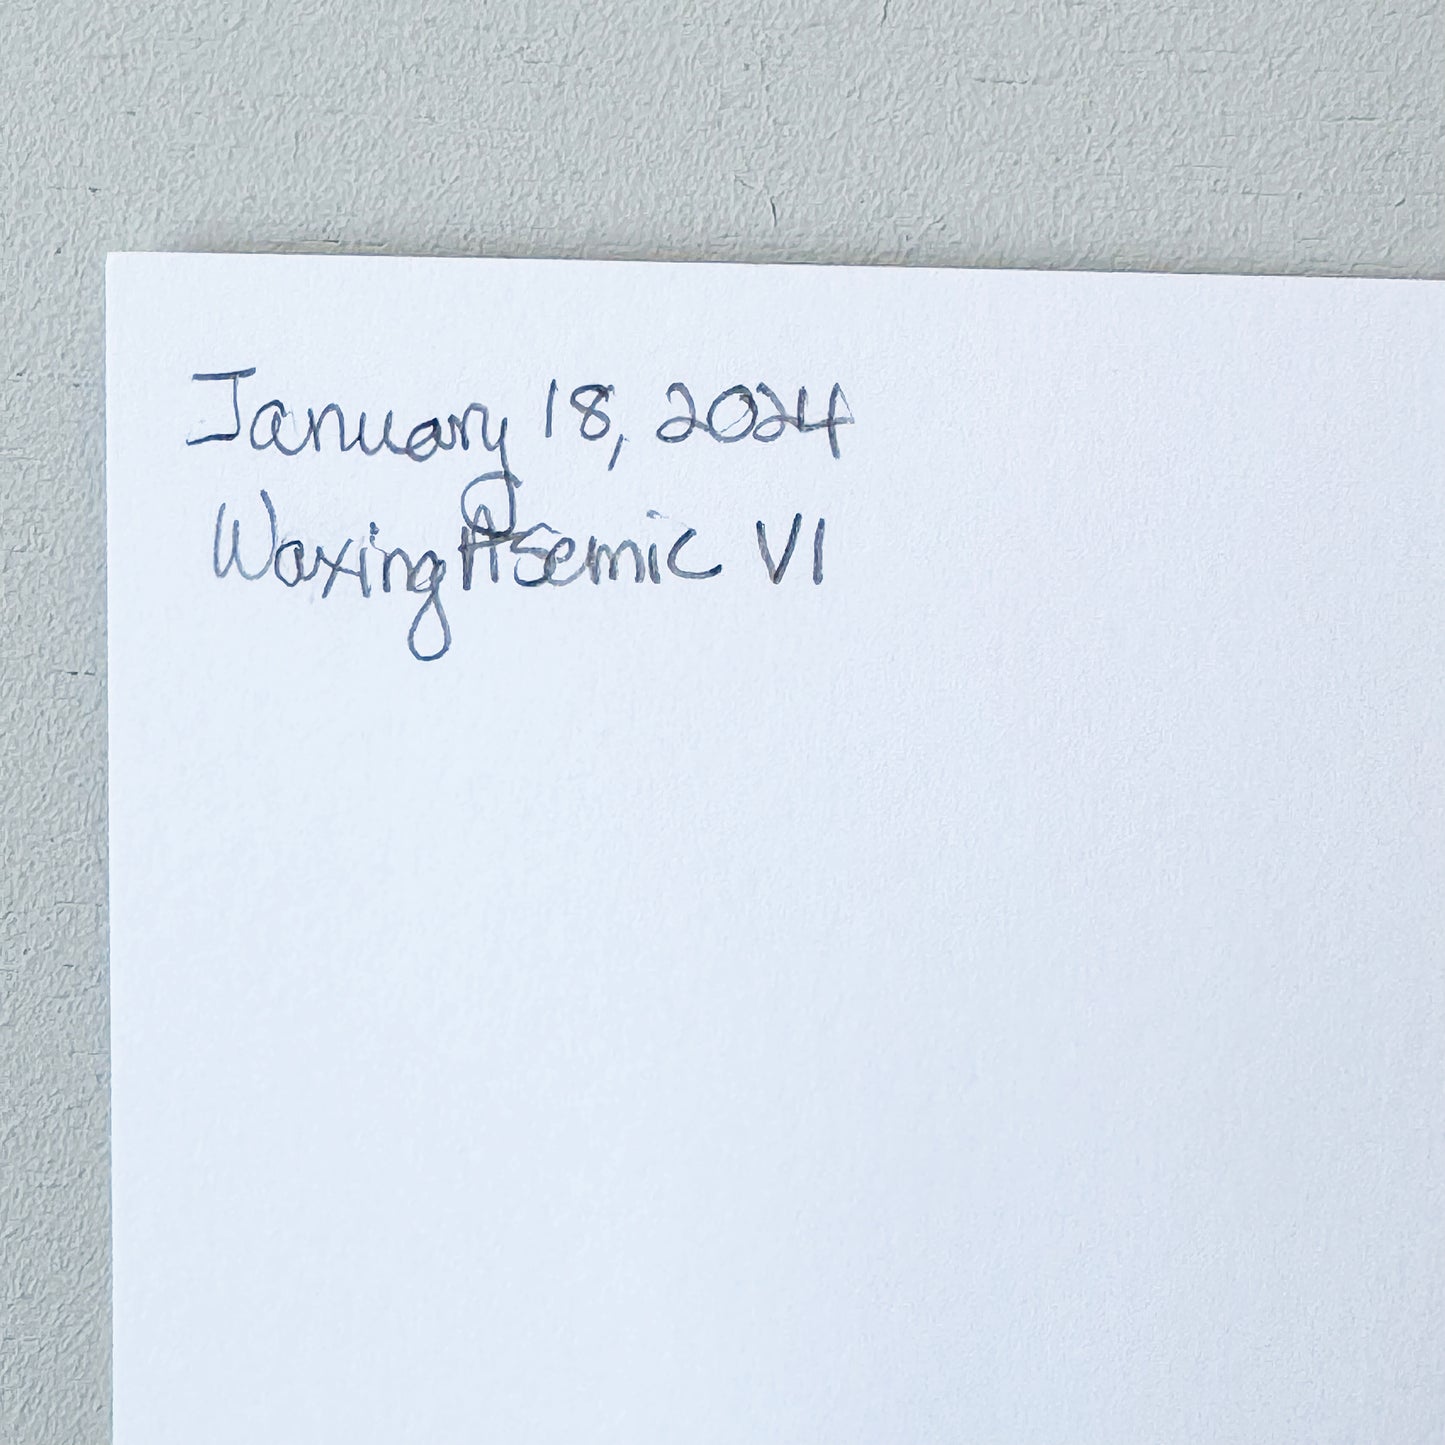 January 18, 2024
Waxing Asemic VI